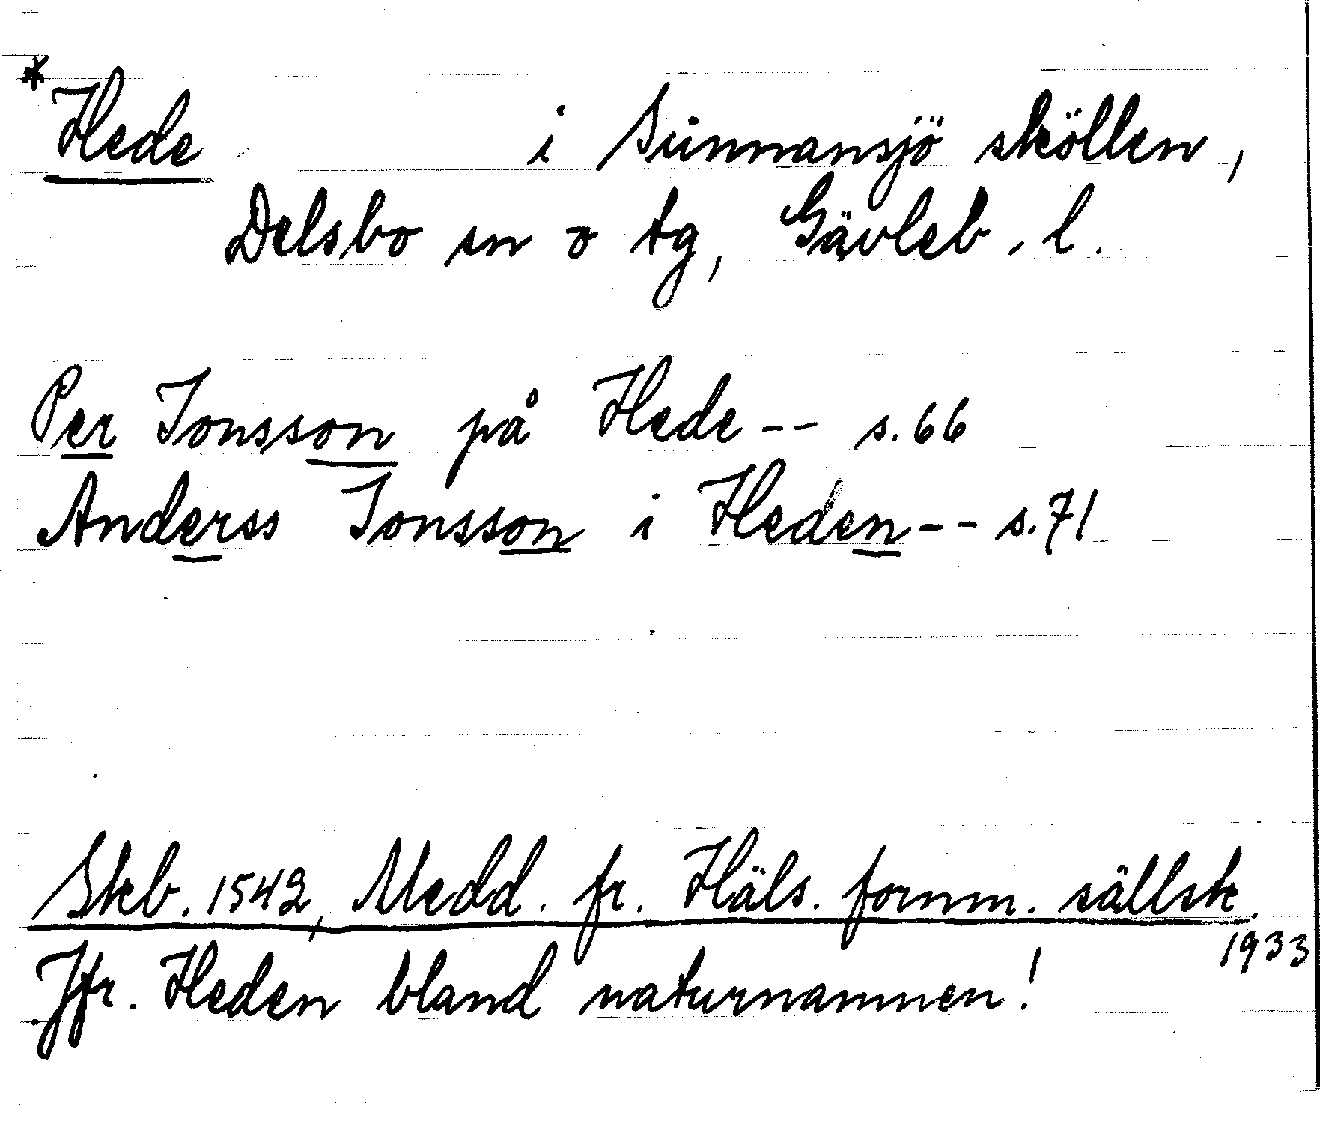 *Hede i Sunnansjö sköllen,
Delsbo sn o tg, Gävleb. l.
Per Jonsson på Hede -- s. 66
Anderss Jonsson i Heden -- s. 71
Skb. 1542, Medd. fr. Häls. fornm. sällsk.
1933
Jfr. Heden bland naturnamnen!